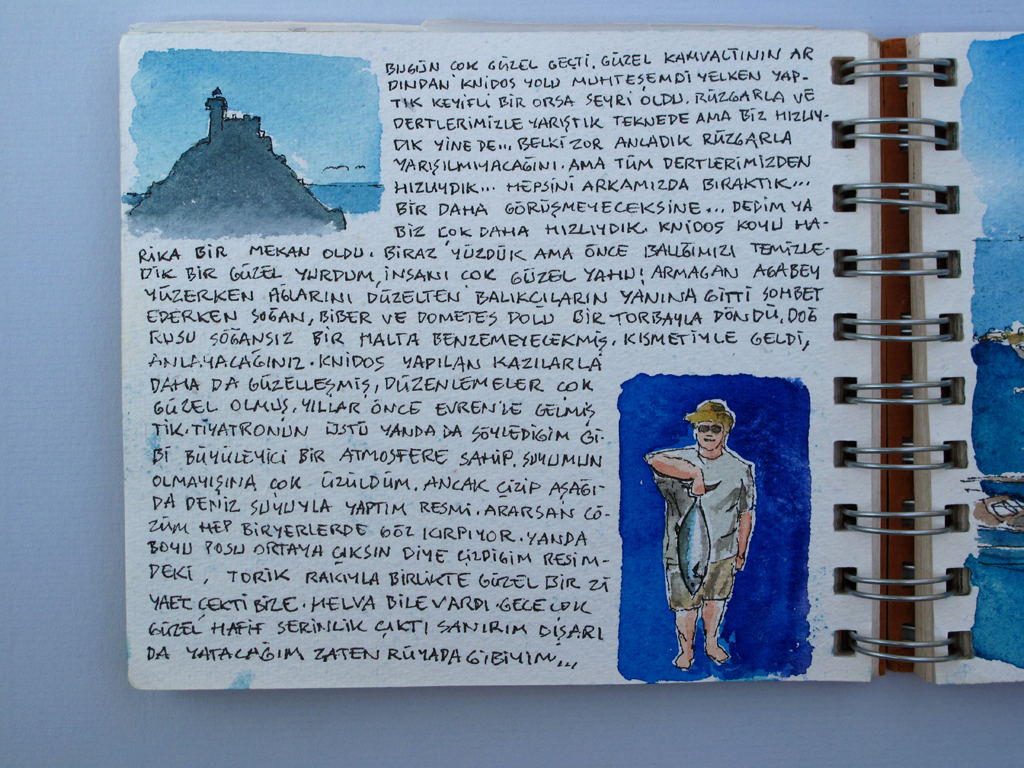 BUGÜN ÇOK GÜZEL GEÇTİ. GÜZEL KAHVALTININ AR
DINDAN KNİDOS YOLU MUHTEŞEMDİ YELKEN YAP-
TIK KEYİFLİ BİR ORSA SEYRİ OLDU. RÜZGARLA VE
DERTLERİMİZLE YARIŞTIK TEKNEDE AMA BİZ HIZLIY-
DIK YİNE DE... BELKİ ZOR ANLADIK RÜZGARLA
YARIŞILMIYACAĞINI. AMA TÜM DERTLERİMİZDEN
HIZLIYDIK... HEPSİNİ ARKAMIZDA BIRAKTIK...
BİR DAHA GÖRÜŞMEYECEKSİNE... DEDİM YA
BİZ ÇOK DAHA HIZLIYDIK. KNİDOS KOYU HA-
RİKA BİR MEKAN OLDU. BİRAZ YÜZDÜK AMA ÖNCE BALIĞIMIZI TEMİZLE-
DİK BİR GÜZEL YURDUM, İNSANI ÇOK GÜZEL YAHU! ARMAGAN AGABEY
YÜZERKEN AĞLARINI DÜZELTEN BALIKÇILARIN YANINA GİTTİ SOHBET
EDERKEN SOĞAN, BİBER VE DOMETES DOLU BİR TORBAYLA DÖNDÜ. DOĞ
RUSU SOĞANSIZ BİR HALTA BENZEMEYECEKMİŞ. KISMETİYLE GELDİ,
ANLAYACAĞINIZ. KNİDOS YAPILAN KAZILARLA
DAHA DA GÜZELLEŞMİŞ, DÜZENLEMELER ÇOK
GÜZEL OLMUŞ. YILLAR ÖNCE EVREN'LE GELMİŞ
TİK. TİYATRONUN ÜSTÜ YANDA DA SÖYLEDİGİM Gİ-
Bİ BÜYÜLEYİCİ BİR ATMOSFERE SAHİP. SUYUMUN
OLMAYIŞINA ÇOK ÜZÜLDÜM. ANCAK ÇİZİP AŞAĞI-
DA DENİZ SUYUYLA YAPTIM RESMİ. ARARSAN ÇÖ-
ZÜM HEP BİRYERLERDE GÖZ KIRPIYOR. YANDA
BOYU POSU ORTAYA ÇIKSIN DİYE ÇİZDİGİM RESİM-
DEKİ, TORİK RAKIYLA BİRLİKTE GÜZEL BİR Zİ
YAFET ÇEKTİ BİZE. HELVA BİLE VARDI. GECE ÇOK
GÜZEL HAFİF SERİNLİK ÇIKTI SANIRIM DIŞARI
DA YATACAĞIM ZATEN RÜYADA GİBİYİM...